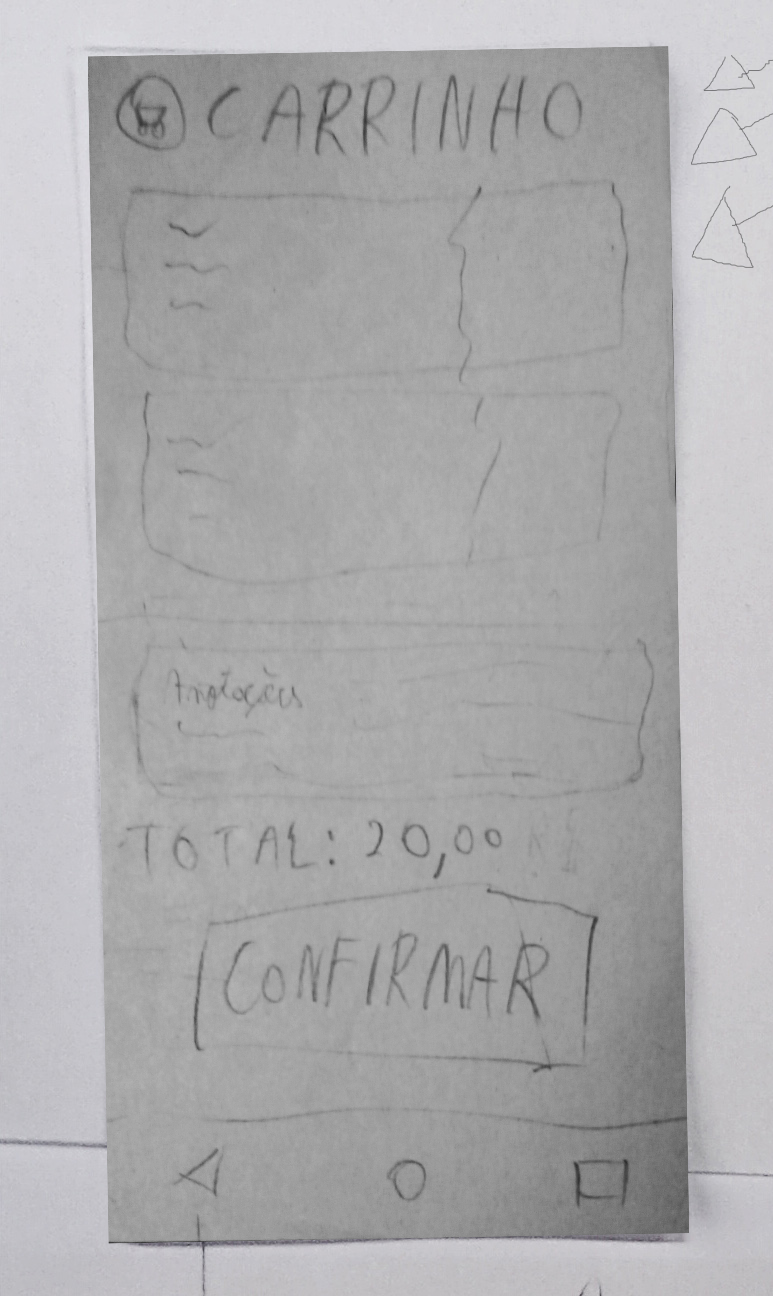 CARRINHO
Anotações
TOTAL: 20,00
CONFIRMAR